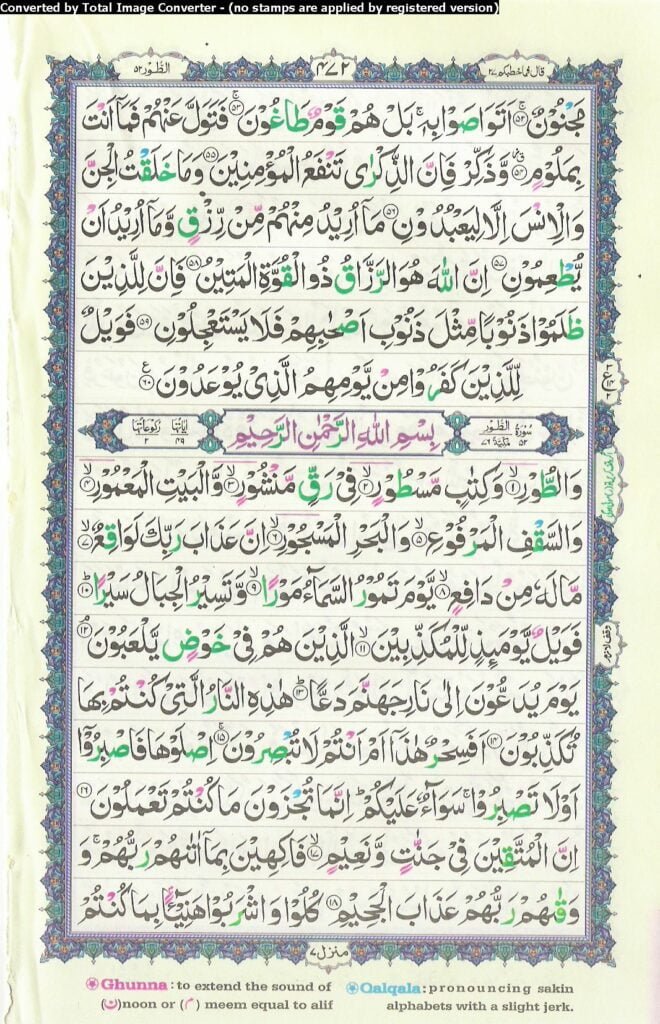 Converted by Total Image Converter - (no stamps are applied by registered version)
الطور ٥٢
٤٧٢
قال فما خطبكم ٢٧
مَجْنُوْنٌ ۚ۝٥٢ اَتَوَاصَوْا بِهٖ ۚ بَلْ هُمْ قَوْمٌ طَاغُوْنَ ۚ۝٥٣ فَتَوَلَّ عَنْهُمْ فَمَاۤ اَنْتَ
بِمَلُوْمٍ ۝٥٤ وَّذَكِّرْ فَاِنَّ الذِّكْرٰى تَنْفَعُ الْمُؤْمِنِيْنَ ۝٥٥ وَمَا خَلَقْتُ الْجِنَّ
وَالْاِنْسَ اِلَّا لِيَعْبُدُوْنِ ۝٥٦ مَاۤ اُرِيْدُ مِنْهُمْ مِّنْ رِّزْقٍ وَّمَاۤ اُرِيْدُ اَنْ
يُّطْعِمُوْنِ ۝٥٧ اِنَّ اللّٰهَ هُوَ الرَّزَّاقُ ذُو الْقُوَّةِ الْمَتِيْنُ ۝٥٨ فَاِنَّ لِلَّذِيْنَ
ظَلَمُوْا ذَنُوْبًا مِّثْلَ ذَنُوْبِ اَصْحٰبِهِمْ فَلَا يَسْتَعْجِلُوْنِ ۝٥٩ فَوَيْلٌ
لِّلَّذِيْنَ كَفَرُوْا مِنْ يَّوْمِهِمُ الَّذِيْ يُوْعَدُوْنَ ۝٦٠
سُوْرَةُ الطُّوْرِ ٥٢ مَكِّيَّةٌ ٧٦
بِسْمِ اللّٰهِ الرَّحْمٰنِ الرَّحِيْمِ
اٰيَاتُهَا ٤٩
رُكُوْعَاتُهَا ٢
وَالطُّوْرِ ۙ۝١ وَكِتٰبٍ مَّسْطُوْرٍ ۙ۝٢ فِيْ رَقٍّ مَّنْشُوْرٍ ۙ۝٣ وَّالْبَيْتِ الْمَعْمُوْرِ ۙ۝٤
وَالسَّقْفِ الْمَرْفُوْعِ ۙ۝٥ وَالْبَحْرِ الْمَسْجُوْرِ ۙ۝٦ اِنَّ عَذَابَ رَبِّكَ لَوَاقِعٌ ۙ۝٧
مَّا لَهٗ مِنْ دَافِعٍ ۙ۝٨ يَّوْمَ تَمُوْرُ السَّمَآءُ مَوْرًا ۙ۝٩ وَّتَسِيْرُ الْجِبَالُ سَيْرًا ؕ۝١٠
فَوَيْلٌ يَّوْمَئِذٍ لِّلْمُكَذِّبِيْنَ ۙ۝١١ الَّذِيْنَ هُمْ فِيْ خَوْضٍ يَّلْعَبُوْنَ ۘ۝١٢
يَوْمَ يُدَعُّوْنَ اِلٰى نَارِ جَهَنَّمَ دَعًّا ؕ۝١٣ هٰذِهِ النَّارُ الَّتِيْ كُنْتُمْ بِهَا
تُكَذِّبُوْنَ ۝١٤ اَفَسِحْرٌ هٰذَاۤ اَمْ اَنْتُمْ لَا تُبْصِرُوْنَ ۚ۝١٥ اِصْلَوْهَا فَاصْبِرُوْۤا
اَوْ لَا تَصْبِرُوْا ۚ سَوَآءٌ عَلَيْكُمْ ؕ اِنَّمَا تُجْزَوْنَ مَا كُنْتُمْ تَعْمَلُوْنَ ۝١٦
اِنَّ الْمُتَّقِيْنَ فِيْ جَنّٰتٍ وَّنَعِيْمٍ ۙ۝١٧ فٰكِهِيْنَ بِمَاۤ اٰتٰىهُمْ رَبُّهُمْ ۚ وَ
وَقٰىهُمْ رَبُّهُمْ عَذَابَ الْجَحِيْمِ ۝١٨ كُلُوْا وَاشْرَبُوْا هَنِيْٓـًٔۢا بِمَا كُنْتُمْ
وقف لازم
منزل ٧
Ghunna : to extend the sound of
(ن)noon or (م) meem equal to alif
Qalqala : pronouncing sakin
alphabets with a slight jerk.